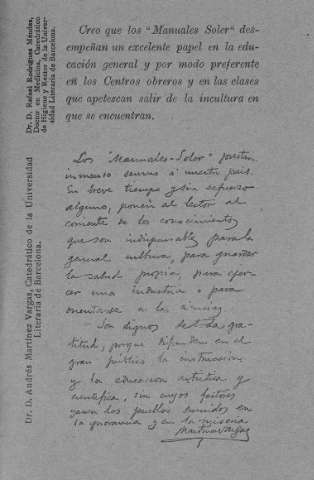 Dr. D. Rafael Rodríguez Méndez,
Doctor en Medicina, Catedrático
de Higiene y Rector de la Univer-
sidad Literaria de Barcelona.
Creo que los "Manuales Soler" des-
empeñan un excelente papel en la edu-
cación general y por modo preferente
en los Centros obreros y en las clases
que apetezcan salir de la incultura en
que se encuentran.
Dr. D. Andrés Martínez Vargas, Catedrático de la Universidad
Literaria de Barcelona.
Los "Manuales-Soler" prestan
inmenso servicio a nuestro país.
En breve tiempo y sin esfuerzo
alguno, ponen al lector al
corriente de los conocimientos
que son indispensables para la
general cultura, para guardar
la salud propia, para ejer-
cer una industria o para
orientarse a las ciencias
- Son dignos de toda gra-
titud, porque difunden en el
gran público la instrucción
y la educación artística y
científica, sin cuyos factores
yacen los pueblos sumidos en
la ignorancia y en la miseria
Martínez Vargas